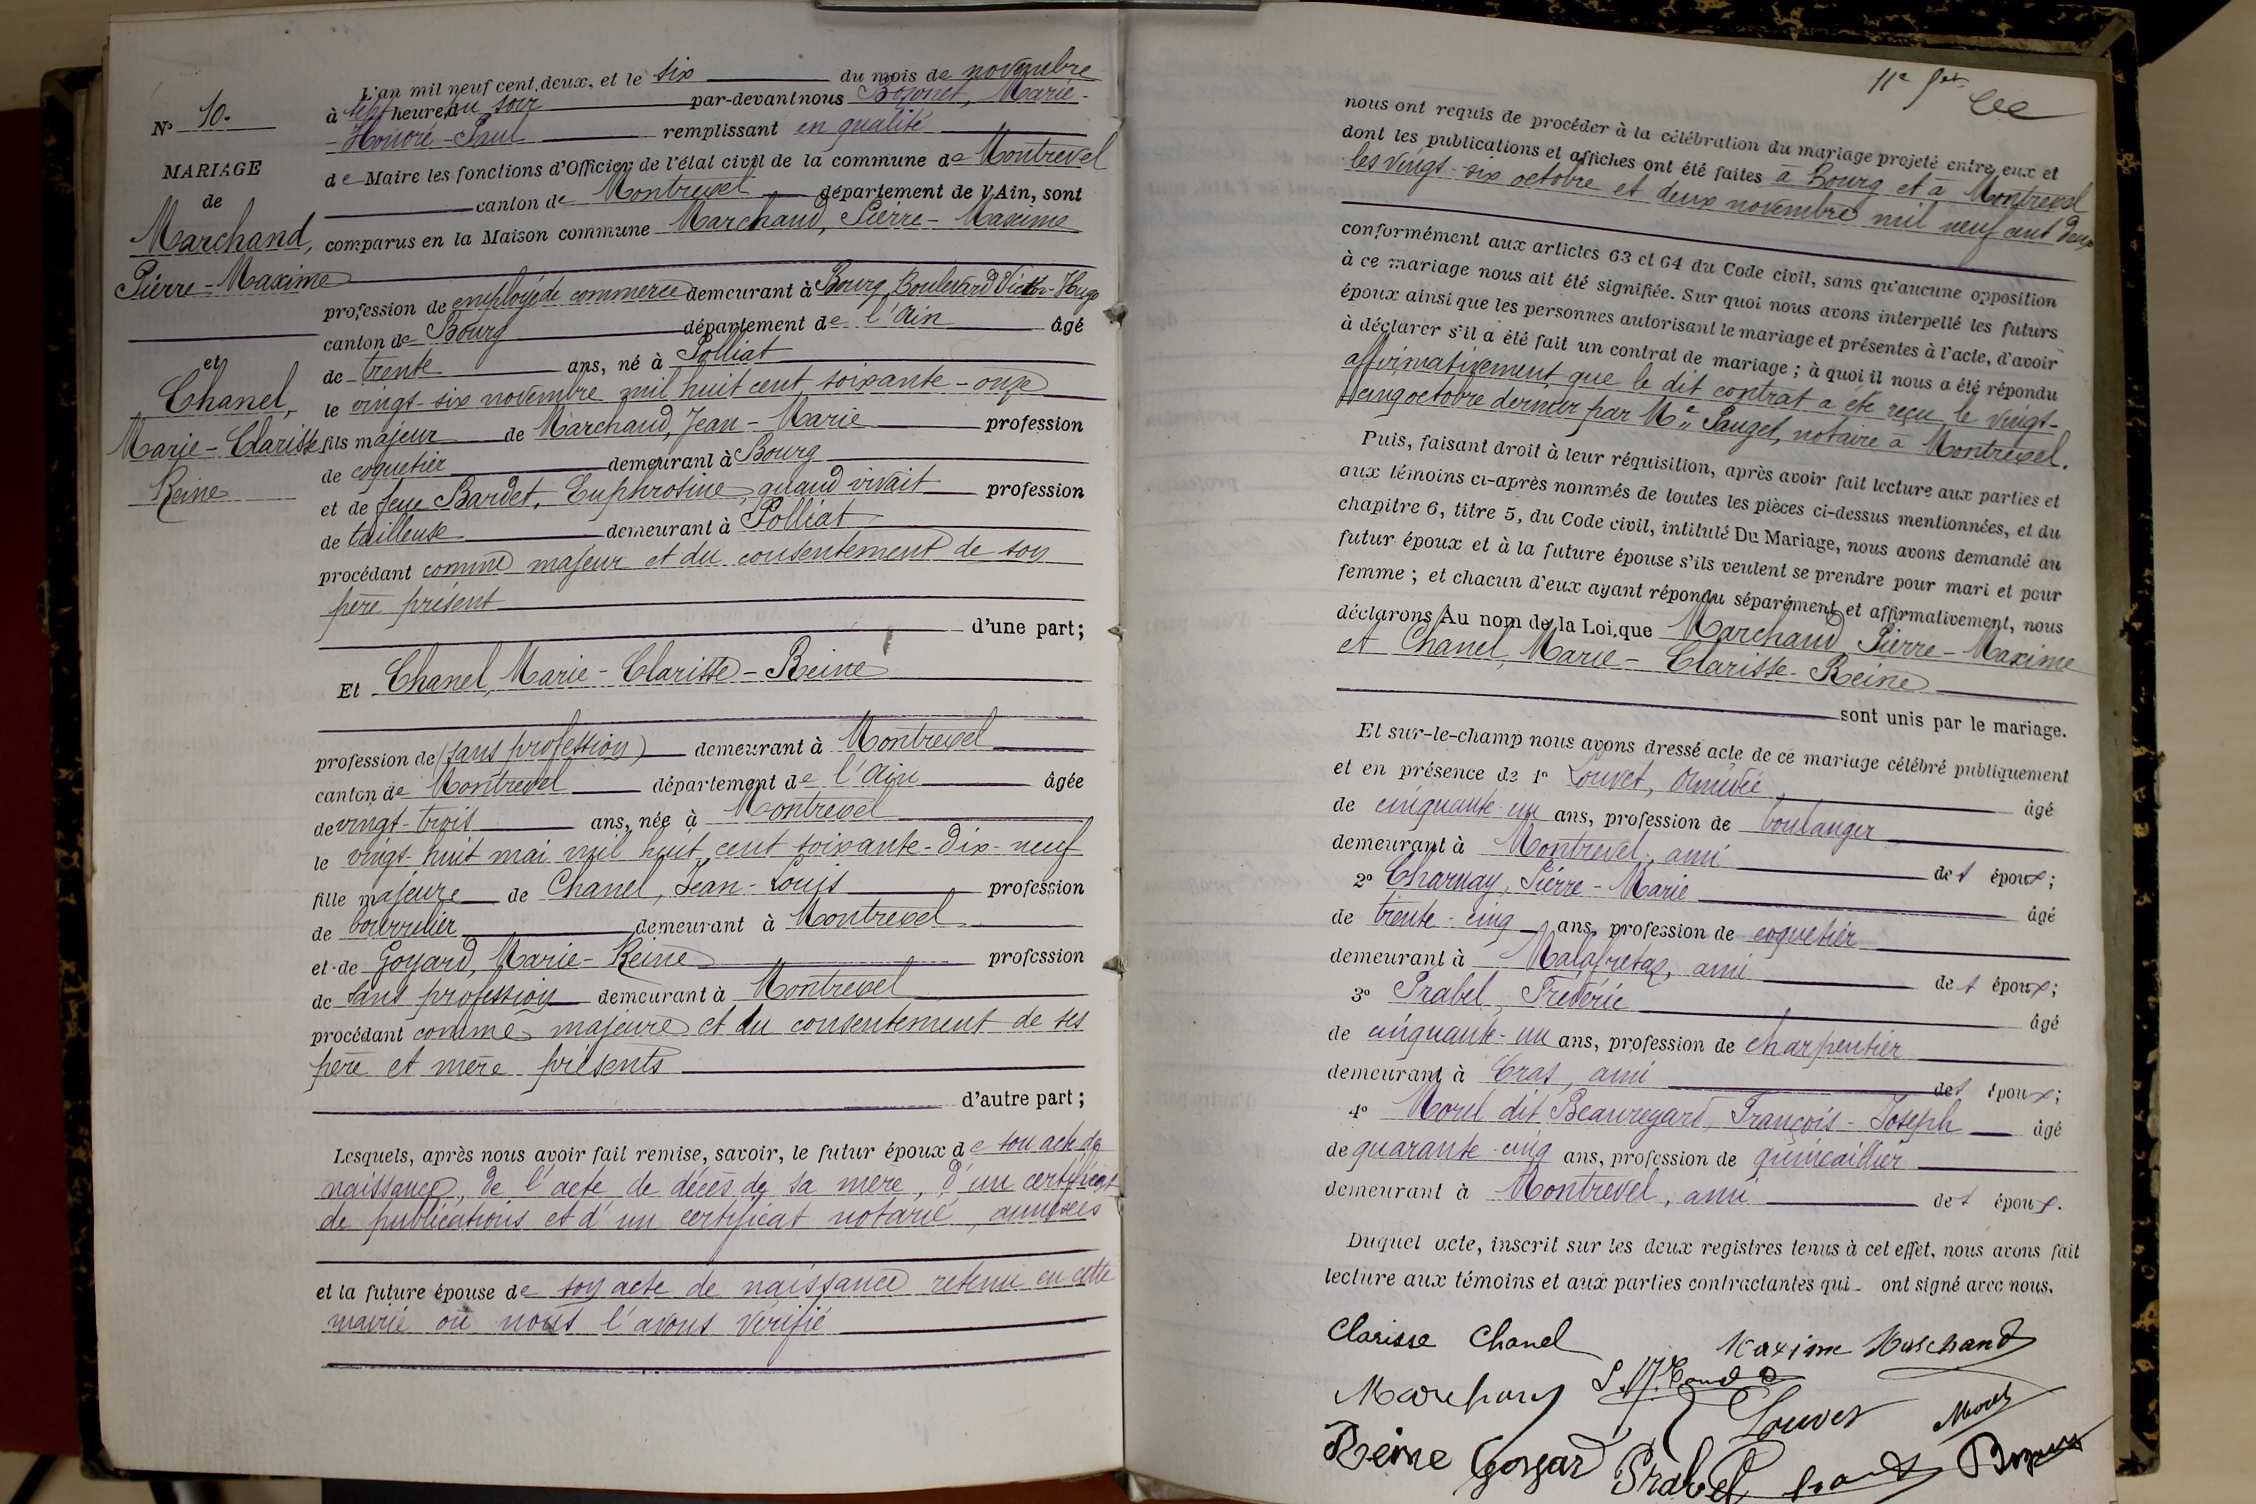 L'an mil neuf cent deux, et le six du mois de novembre
à sept heures du soir par-devant nous Bozonet, Marie-
-Honoré-Paul remplissant en qualité
de Maire les fonctions d'Officier de l'état civil de la commune de Montrevel
canton de Montrevel département de l'Ain, sont
comparus en la Maison commune Marchand, Pierre-Maxime
profession de employé de commerce demeurant à Bourg, Boulevard Victor-Hugo
canton de Bourg département de l'Ain âgé
de trente ans, né à Polliat
le vingt-six novembre mil huit cent soixante-onze
fils majeur de Marchand, Jean-Marie profession
de coquetier demeurant à Bourg
et de feue Bardet, Euphrosine quand vivait profession
de tailleuse demeurant à Polliat
procédant comme majeur et du consentement de son
père présent
d'une part;
Et Chanel, Marie-Clarisse-Reine
profession de (sans profession) demeurant à Montrevel
canton de Montrevel département de l'Ain âgée
de vingt-trois ans, née à Montrevel
le vingt-huit mai mil huit cent soixante-dix-neuf
fille majeure de Chanel, Jean-Louis profession
de bourrelier demeurant à Montrevel
et de Goyard, Marie-Reine profession
de sans profession demeurant à Montrevel
procédant comme majeure et du consentement de ses
père et mère présents
d'autre part;
Lesquels, après nous avoir fait remise, savoir, le futur époux de son acte de
naissance, de l'acte de décès de sa mère, d'un certificat
de publications et d'un certificat notarié, annexés
et la future épouse de son acte de naissance retenu en cette
mairie où nous l'avons vérifié
No 10.
MARIAGE
de
Marchand,
Pierre-Maxime
et
Chanel,
Marie-Clarisse
Reine
11e ft
nous ont requis de procéder à la célébration du mariage projeté entre eux et
dont les publications et affiches ont été faites à Bourg et à Montrevel
les vingt-six octobre et deux novembre mil neuf cent deux
conformément aux articles 63 et 64 du Code civil, sans qu'aucune opposition
à ce mariage nous ait été signifiée. Sur quoi nous avons interpellé les futurs
époux ainsi que les personnes autorisant le mariage et présentes à l'acte, d'avoir
à déclarer s'il a été fait un contrat de mariage; à quoi il nous a été répondu
affirmativement que le dit contrat a été reçu le vingt-
cinq octobre dernier par Me Pauget, notaire à Montrevel.
Puis, faisant droit à leur réquisition, après avoir fait lecture aux parties et
aux témoins ci-après nommés de toutes les pièces ci-dessus mentionnées, et du
chapitre 6, titre 5, du Code civil, intitulé Du Mariage, nous avons demandé au
futur époux et à la future épouse s'ils veulent se prendre pour mari et pour
femme; et chacun d'eux ayant répondu séparément et affirmativement, nous
déclarons Au nom de la Loi, que Marchand, Pierre-Maxime
et Chanel, Marie-Clarisse-Reine
sont unis par le mariage.
Et sur-le-champ nous avons dressé acte de ce mariage célébré publiquement
et en présence de 1o Louvet, Amédée âgé
de cinquante-un ans, profession de boulanger
demeurant à Montrevel, ami des époux;
2o Charnay, Pierre-Marie âgé
de trente-cinq ans, profession de coquetier
demeurant à Malafretaz, ami des époux;
3o Prabel, Frédéric âgé
de cinquante-un ans, profession de charpentier
demeurant à Cras, ami des époux;
4o Morel dit Beauregard, François-Joseph âgé
de quarante-cinq ans, profession de quincaillier
demeurant à Montrevel, ami des époux.
Duquel acte, inscrit sur les deux registres tenus à cet effet, nous avons fait
lecture aux témoins et aux parties contractantes qui ont signé avec nous.
Clarisse Chanel Maxime Marchand
Marchand
Louvet Morel
Reine Goyard Prabel